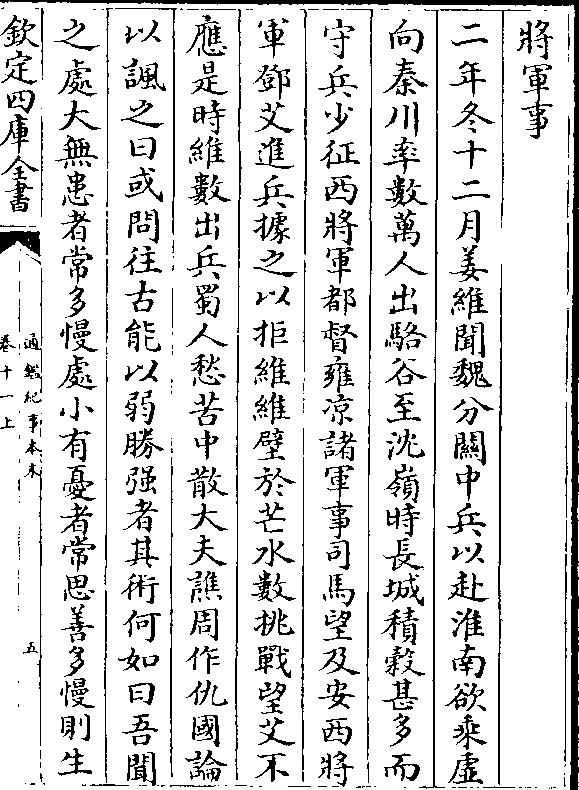 將軍事
二年冬十二月姜維聞魏分關中兵以赴淮南欲乘虛
向秦川率數萬人出駱谷至沈嶺時長城積穀甚多而
守兵少征西將軍都督雍凉諸軍事司馬望及安西將
軍鄧艾進兵據之以拒維維壁於芒水數挑戰望艾不
應是時維數出兵蜀人愁苦中散大夫譙周作仇國論
以諷之曰或問往古能以弱勝强者其術何如曰吾聞
之處大無患者常多慢處小有憂者常思善多慢則生
欽定四庫全書
通鑑紀事本末
卷十一上
五